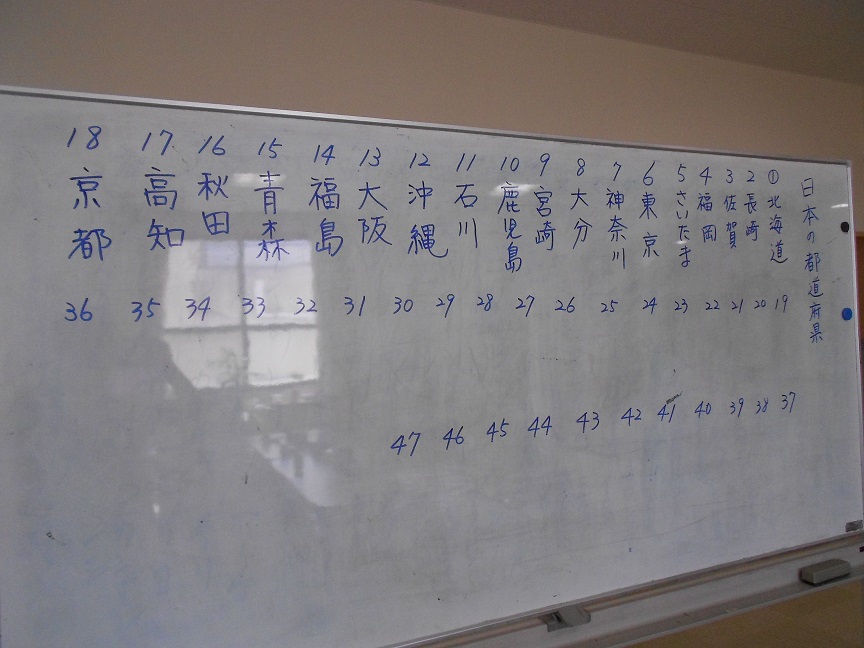 日本の都道府県
①北海道
2長崎
3佐賀
4福岡
5さいたま
6東京
7神奈川
8大分
9宮崎
10鹿児島
11石川
12沖縄
13大阪
14福島
15青森
16秋田
17高知
18京都
19
20
21
22
23
24
25
26
27
28
29
30
31
32
33
34
35
36
37
38
39
40
41
42
43
44
45
46
47